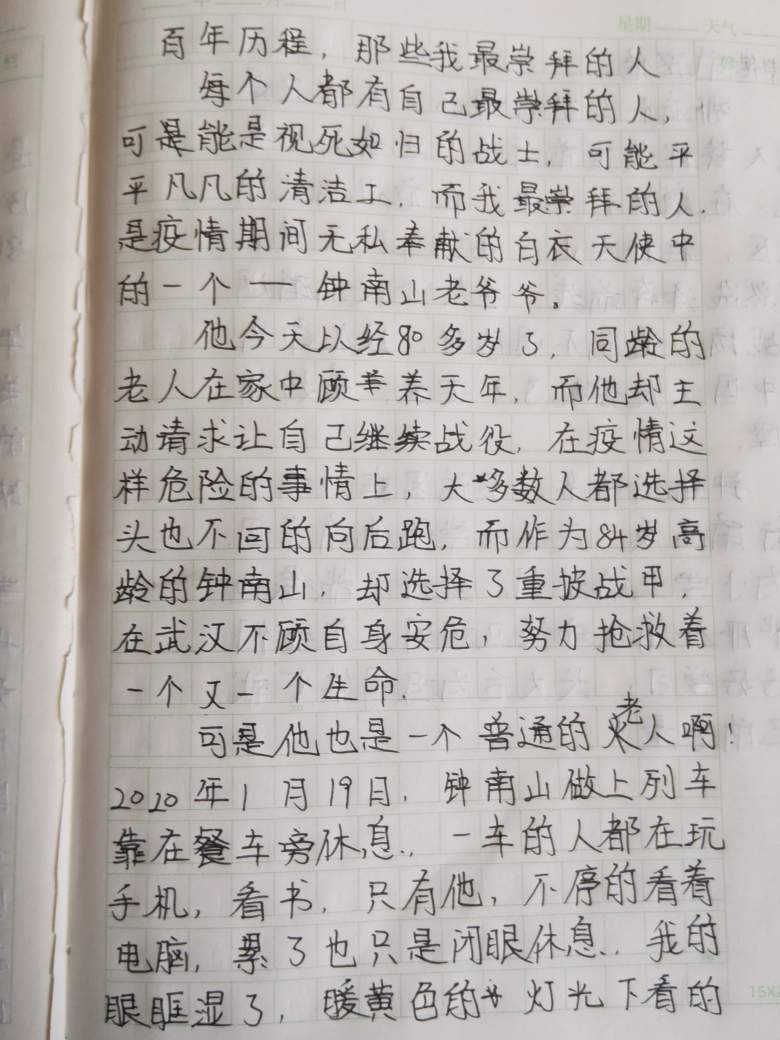 星期 天气
百年历程，那些我最崇拜的人
每个人都有自己最崇拜的人，
可是能是视死如归的战士，可能平
平凡凡的清洁工，而我最崇拜的人，
是疫情期间无私奉献的白衣天使中
的一个——钟南山老爷爷。
他今天以经80多岁了，同龄的
老人在家中顾养天年，而他却主
动请求让自己继续战役，在疫情这
样危险的事情上，大多数人都选择
头也不回的向后跑，而作为84岁高
龄的钟南山，却选择了重披战甲，
在武汉不顾自身安危，努力抢救着
一个又一个生命．
可是他也是一个普通的老人啊！
2020年1月19日，钟南山做上列车
靠在餐车旁休息．，一车的人都在玩
手机，看书，只有他，不停的看着
电脑，累了也只是闭眼休息．．我的
眼眶湿了，暖黄色的灯光下看的